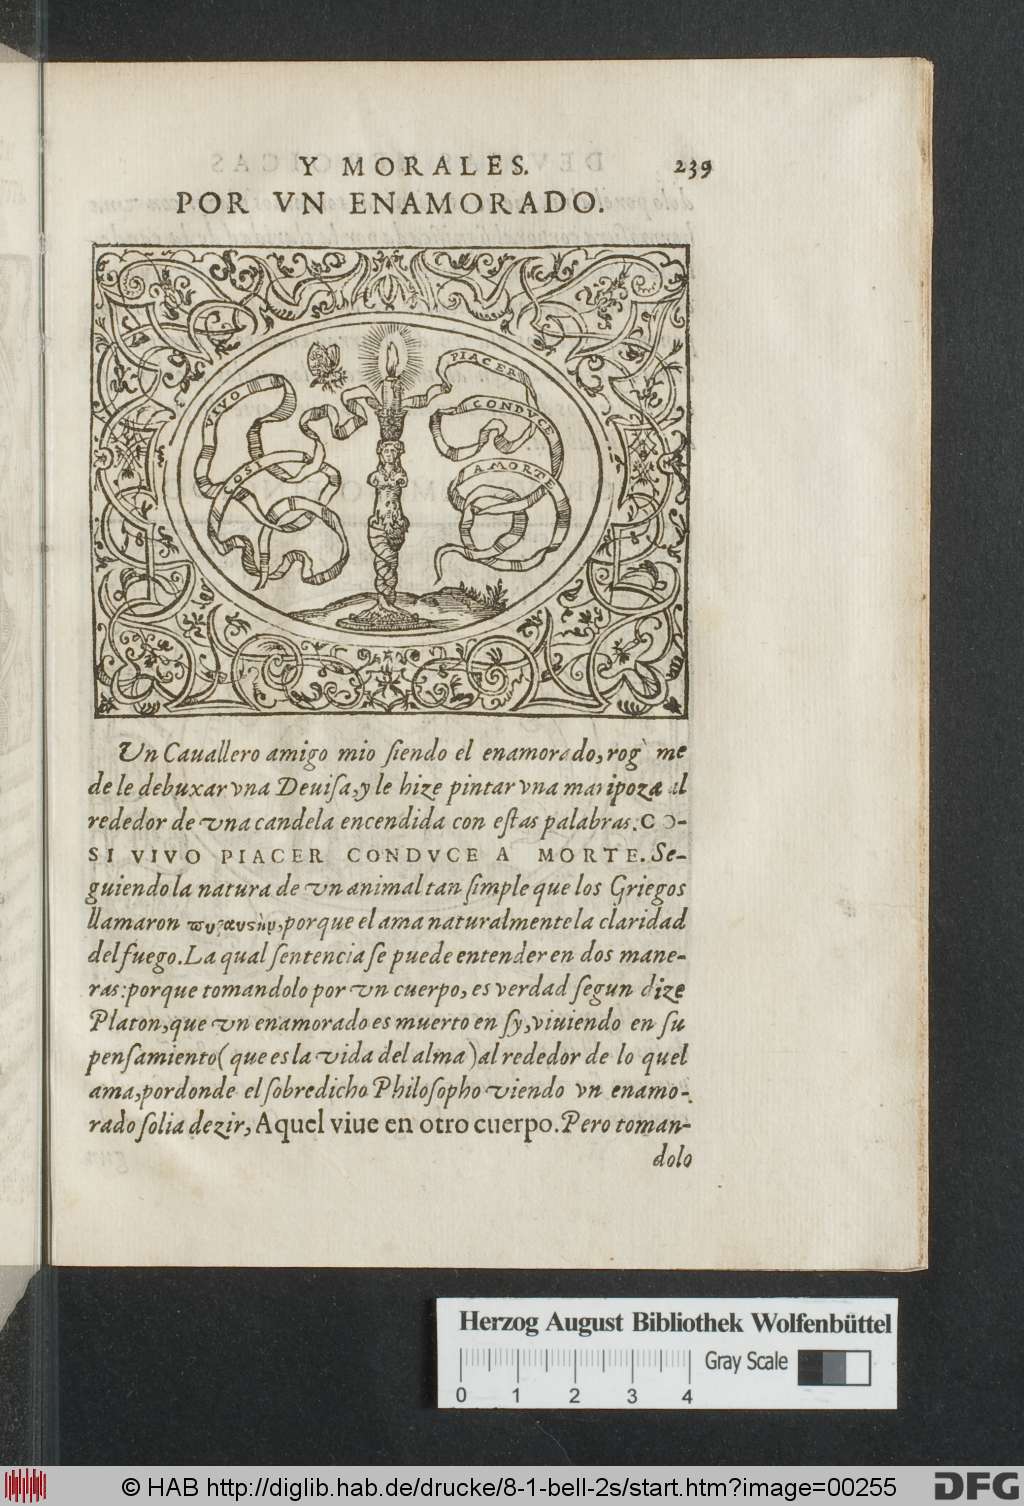 Y MORALES. 239
POR VN ENAMORADO.
VIVO
COSI
PIACER
CONDVCE
A MORTE
Un Cauallero amigo mio ſiendo el enamorado, rog me
de le debuxar vna Deuiſa, y le hize pintar vna maripoza al
rededor de vna candela encendida con eſtas palabras. CO-
SI VIVO PIACER CONDVCE A MORTE. Se-
guiendo la natura de vn animal tan ſimple que los Griegos
llamaron , porque el ama naturalmente la claridad
del fuego. La qual ſentencia ſe puede entender en dos mane-
ras: porque tomandolo por vn cuerpo, es verdad ſegun dize
Platon, que vn enamorado es muerto en ſy, viuiendo en ſu
penſamiento ( que es la vida del alma ) al rededor de lo quel
ama, por donde el ſobredicho Philoſopho viendo vn enamo-
rado ſolia dezir, Aquel viue en otro cuerpo. Pero toman-
dolo
Herzog August Bibliothek Wolfenbüttel
Gray Scale
0 1 2 3 4
© HAB http://diglib.hab.de/drucke/8-1-bell-2s/start.htm?image=00255
DFG